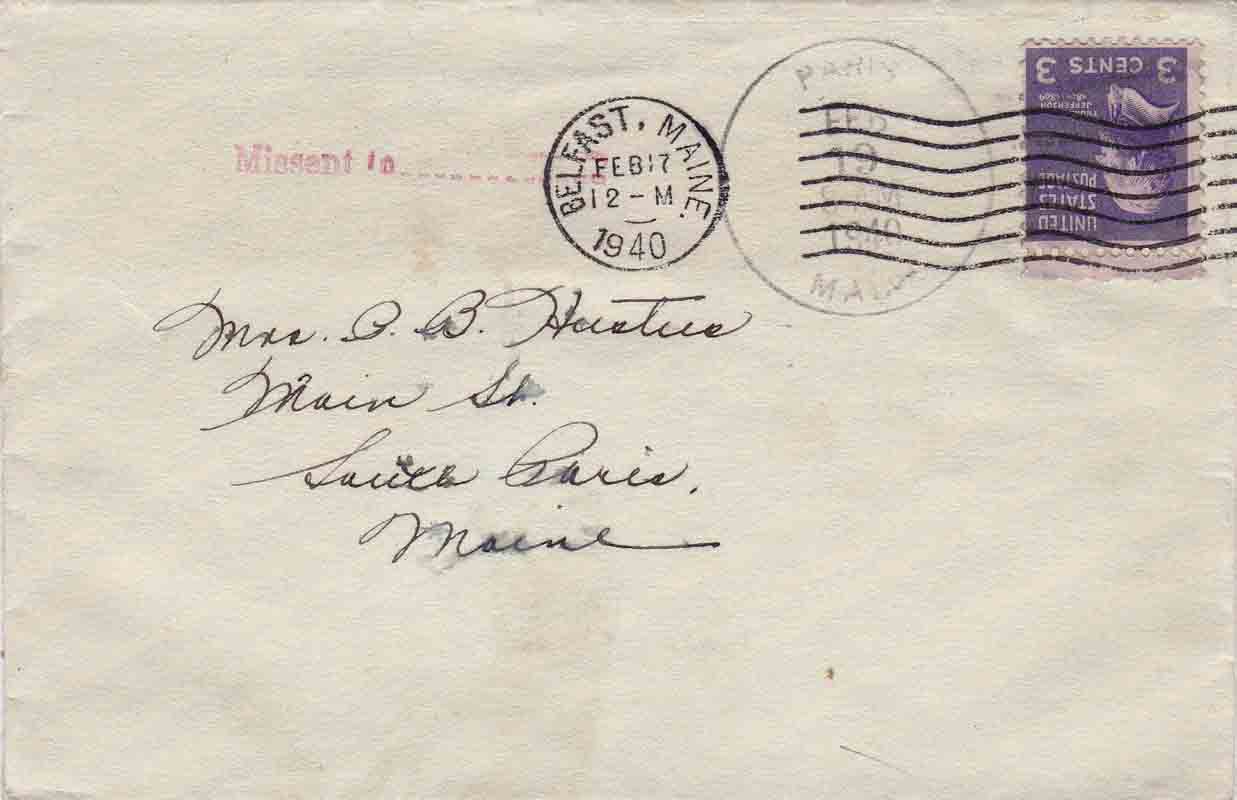 Missent to
BELFAST, MAINE.
FEB 17
12-M
1940
PARIS
FEB
19
M
1940
3 CENTS 3
THOMAS
JEFFERSON
1801-1809
UNITED
STATES
POSTAGE
Mrs. P. B. Hustus
Main St.
South Paris,
Maine